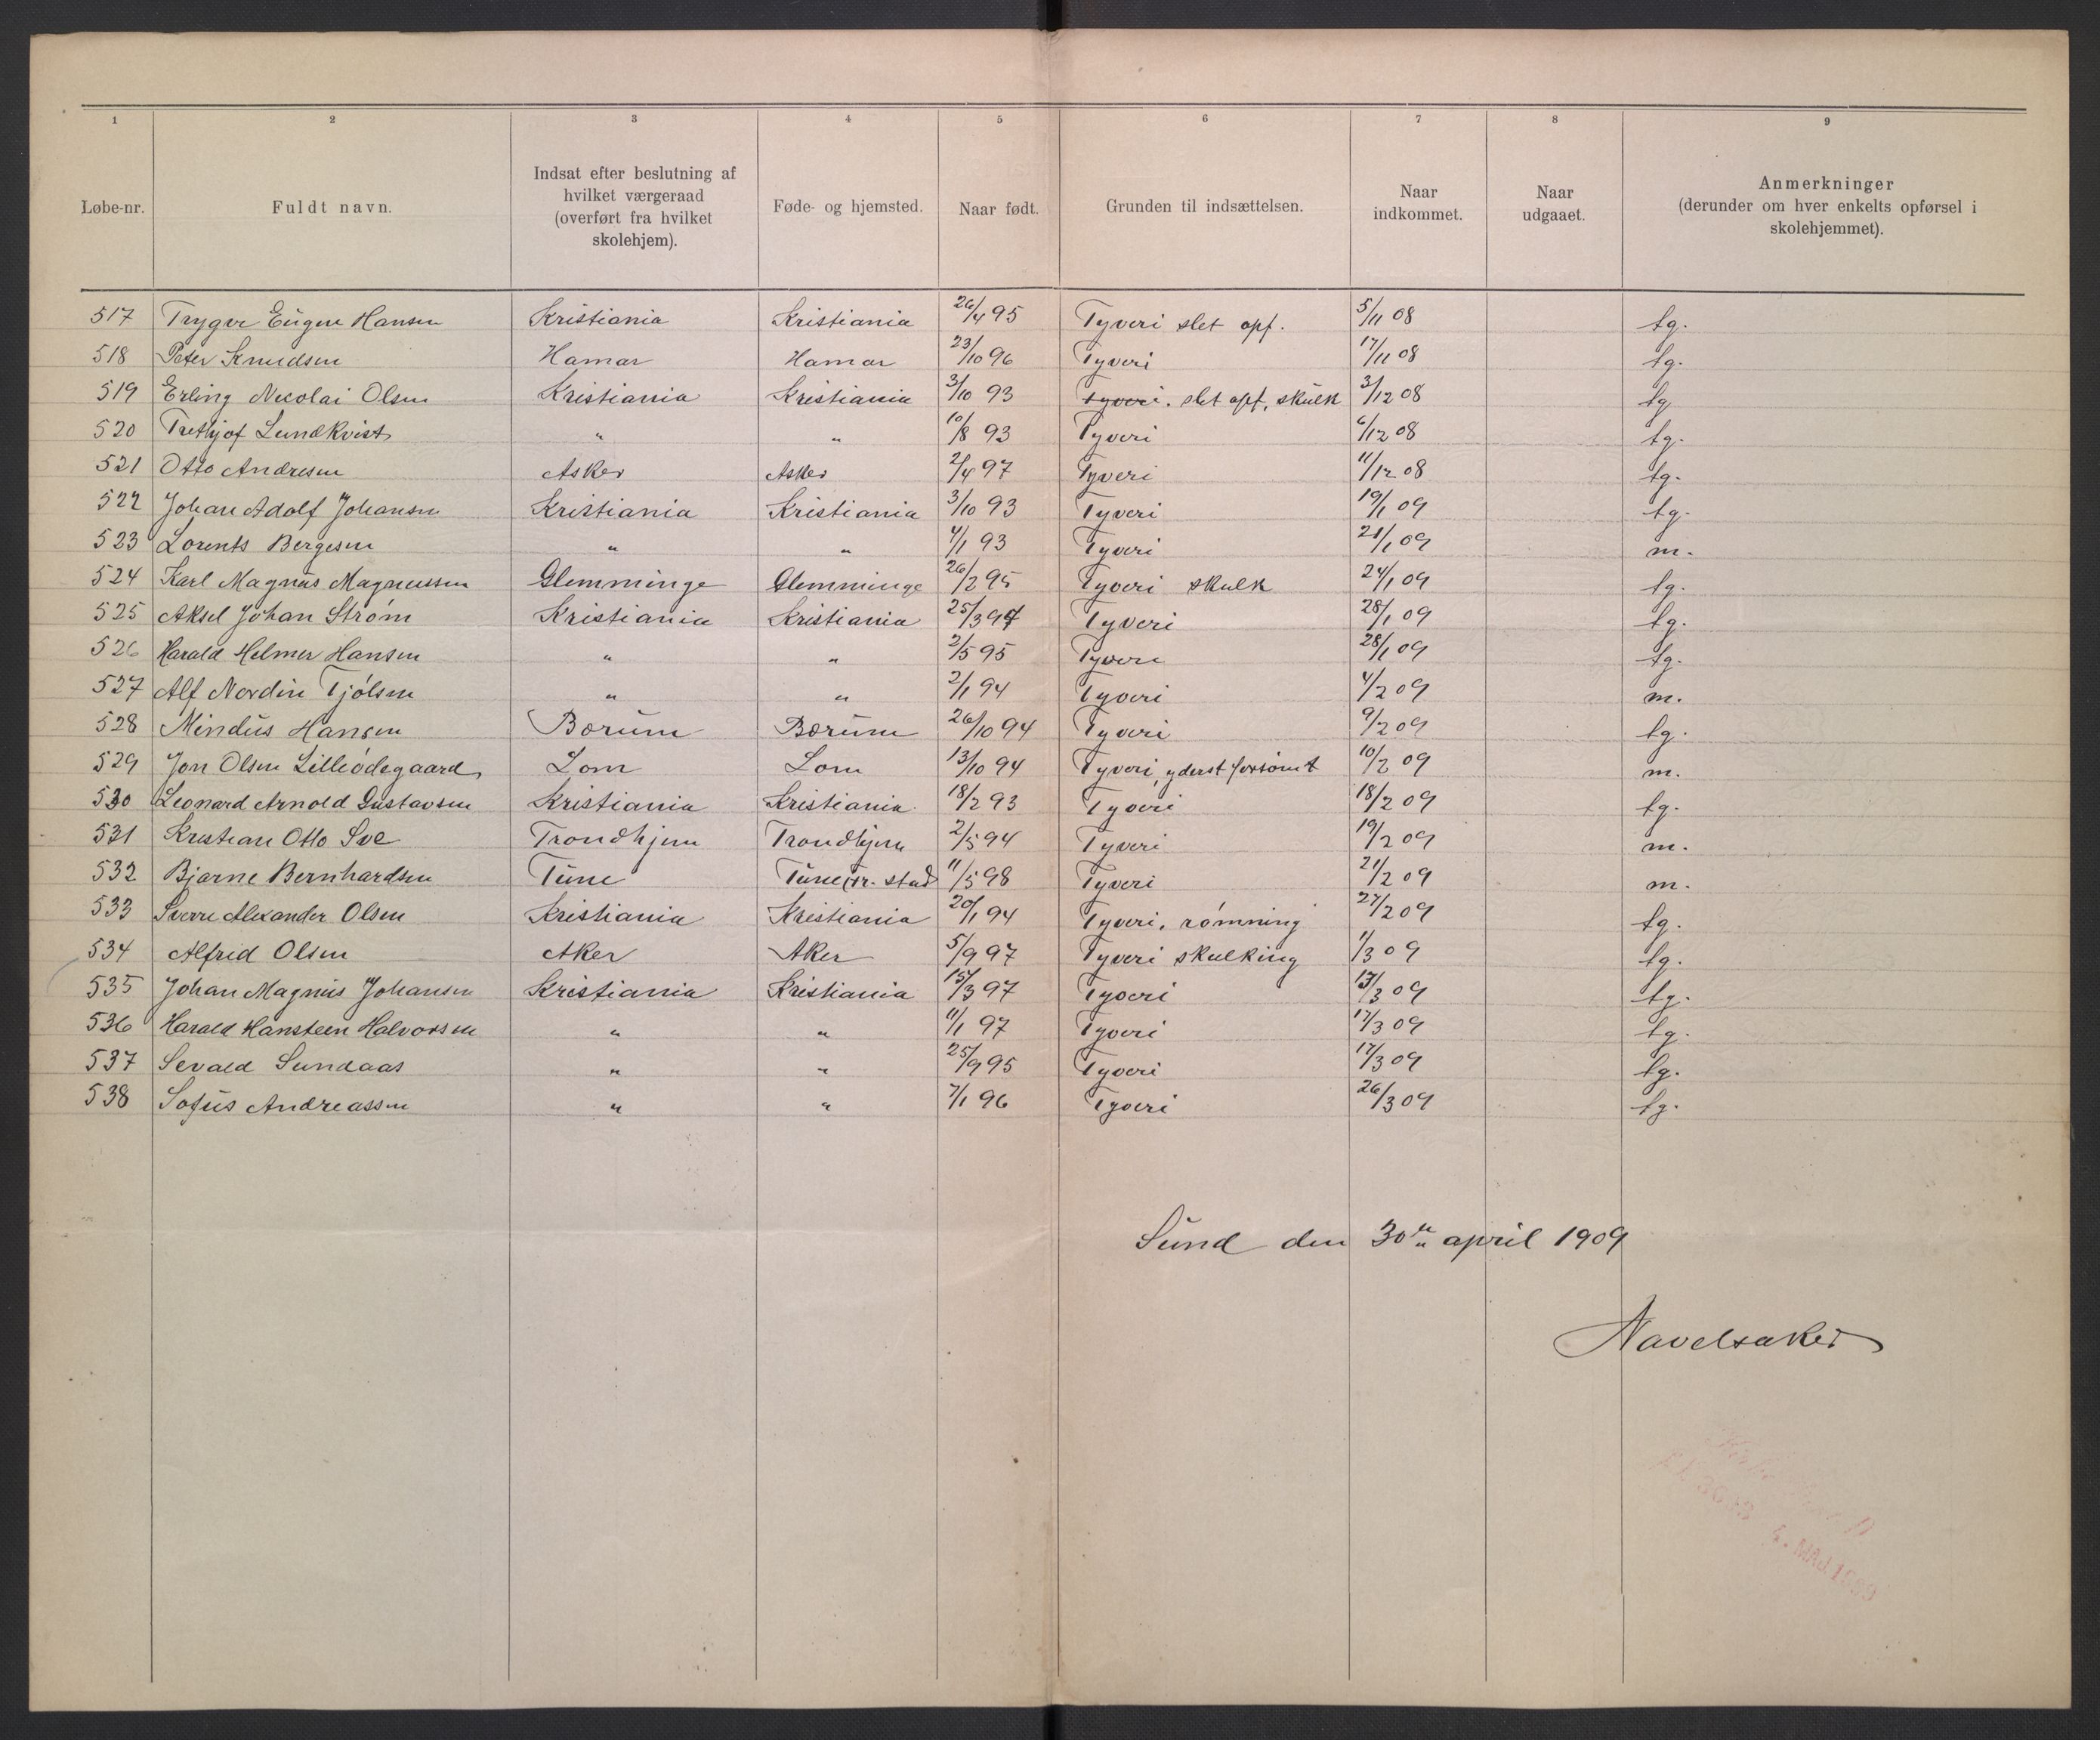 1 2 3 4 5 6 7 8 9
Løbe-nr. Fuldt navn. Indsat efter beslutning af hvilket værgeraad (overført fra hvilket skolehjem). Føde- og hjemsted. Naar født. Grunden til indsættelsen. Naar indkommet. Naar udgaaet. Anmerkninger (derunder om hver enkelts opførsel i skolehjemmet).
517 Trygve Eugen Hansen Kristiania Kristiania 26/4 95 Tyveri slet opf. 5/11 08 tg.
518 Peter Knudsen Hamar Hamar 23/10 96 Tyveri 17/11 08 tg.
519 Erling Nicolai Olsen Kristiania Kristiania 3/10 93 Tyveri. slet opf, skulk 3/12 08 tg
520 Frethjof Lundkvist " " 10/8 93 Tyveri 6/12 08 tg.
521 Otto Andresen Asker Asker 2/4 97 Tyveri 11/12 08 tg.
522 Johan Adolf Johansen Kristiania Kristiania 3/10 93 Tyveri 19/1 09 tg.
523 Lorents Bergesen " " 4/1 93 Tyveri 21/1 09 m.
524 Karl Magnus Magnussen Glemminge Glemminge 26/2 95 Tyveri skulk 24/1 09 tg.
525 Aksel Johan Strøm Kristiania Kristiania 25/3 94 Tyveri 28/1 09 tg.
526 Harald Helmer Hansen " " 2/5 95 Tyveri 28/1 09 tg.
527 Alf Nordin Tjølsen " " 2/1 94 Tyveri 4/2 09 m.
528 Mindus Hansen Bærum Bærum 26/10 94 Tyveri 9/2 09 tg.
529 Jon Olsen Lilleødegaard Lom Lom 13/10 94 Tyveri, yderst forsømt 10/2 09 m.
530 Leonard Arnold Gustavsen Kristiania Kristiania 18/2 93 Tyveri 18/2 09 tg.
531 Kristian Otto Sve Trondhjem Trondhjem 2/5 94 Tyveri 19/2 09 m.
532 Bjarne Bernhardsen Tune Tune Fr. stad 11/5 98 Tyveri 21/2 09 m.
533 Sverre Alexander Olsen Kristiania Kristiania 20/1 94 Tyveri, rømning 27/2 09 tg.
534 Alfred Olsen Aker Aker 5/9 97 Tyveri skulking 1/3 09 tg.
535 Johan Magnus Johansen Kristiania Kristiania 15/3 97 Tyveri 13/3 09 tg.
536 Harald Hansteen Halvorsen " " 11/1 97 Tyveri 17/3 09 tg.
537 Sevald Sundaas " " 25/9 95 Tyveri 17/3 09 tg.
538 Sofus Andreassen " " 7/1 96 Tyveri 26/3 09 tg.
Sund den 30te april 1909
Navelsaker
MAJ 1909